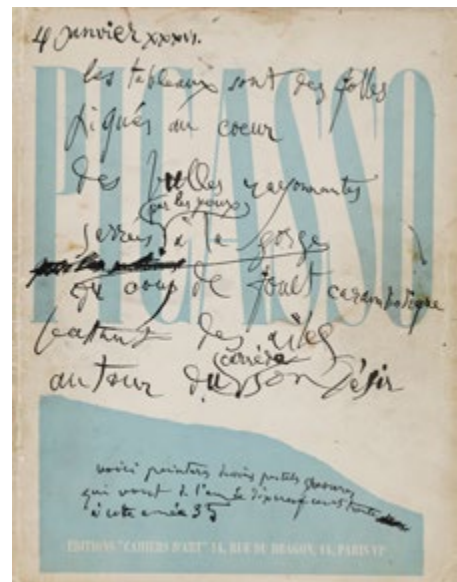 4 janvier xxxvi.
PICASSO
les tableaux sont des folles
piqués au coeur
des bulles rayonnantes
par les yeux
serrés à la gorge
du coup de fouet
battant des ailes
carré
autour du son désir
voici peintures dessins
qui vont de l'année dixneufcent trente
à cette année 35
EDITIONS "CAHIERS D'ART" 14, RUE DU DRAGON, 14, PARIS VIᵉ